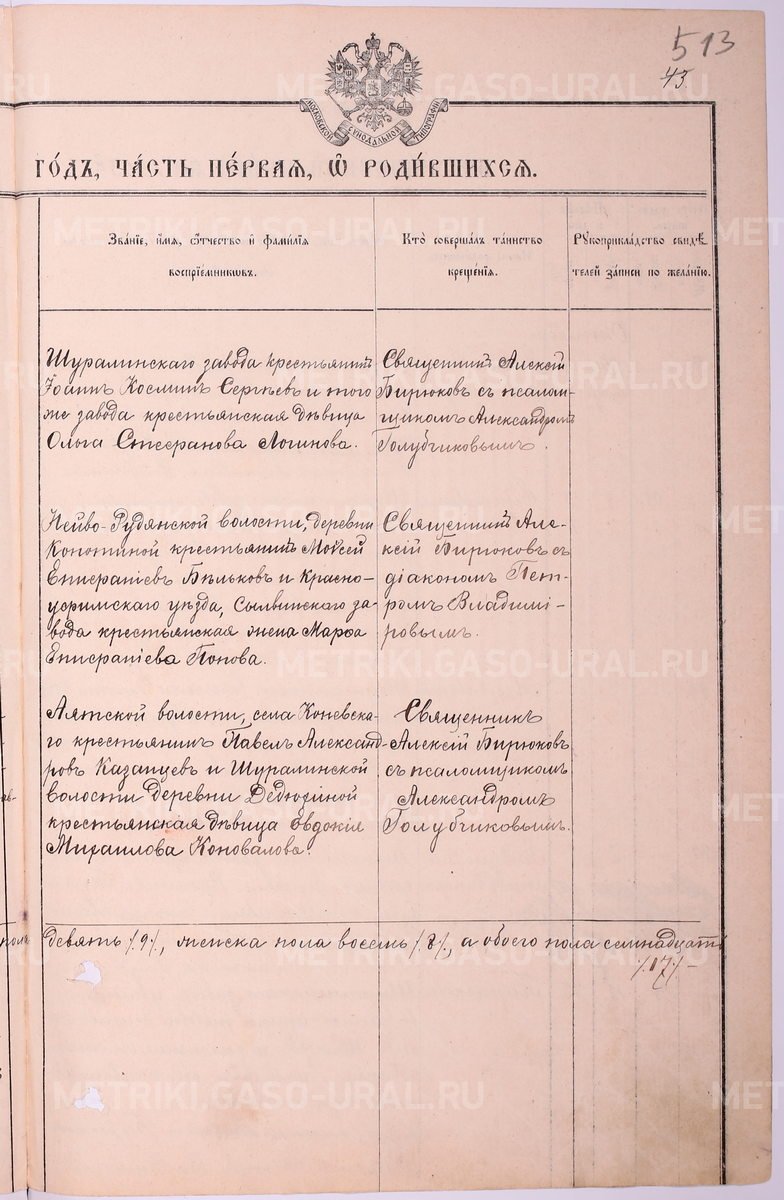 513
43.
МОСКОВСКОЙ СѴНОДАЛЬНОЙ ТИПОГРАФІИ
ГО́ДЪ, ЧА́СТЬ ПЕ́РВАЯ, Ѡ РОДИ́ВШИХСЯ.
Зва́нїе, и́мя, ѻ́тчество и҆ фами́лїя
воспрїе́мникѡвъ.
Кто̀ соверша́лъ та́инство
креще́нїя.
Рꙋкоприкла́дство свидѣ́-
телей за́писи по жела́нїю.
Шуралинскаго завода крестьянинъ
Іоаннъ Космин Сергѣевъ и того
же завода крестьянская дѣвица
Ольга Стефанова Логинова.
Священникъ Алексій
Бирюковъ съ псалом-
щикомъ Александромъ
Голубчиковымъ.
Нейво-Рудянской волости, деревни
Копотиной крестьянинъ Моѵсей
Епифаніевъ Бѣльковъ и Красно-
уфимскаго уѣзда, Сылвинскаго за-
вода крестьянская жена Марѳа
Епифаніева Попова.
Священникъ Але-
ксій Бирюковъ съ
діакономъ Пет-
ромъ Владимі-
ровымъ.
Аятской волости, села Коневска-
го крестьянинъ Павелъ Александ-
ровъ Казанцевъ и Шуралинской
волости деревни Дедюхиной
крестьянская дѣвица Евдокія
Михаилова Коновалова.
Священникъ
Алексій Бирюковъ
съ псаломщикомъ
Александромъ
Голубчиковымъ.
девять /9/, женска пола восемь /8/, а обоего пола семнадцать
/17/ –
METRIKI.GASO-URAL.RU